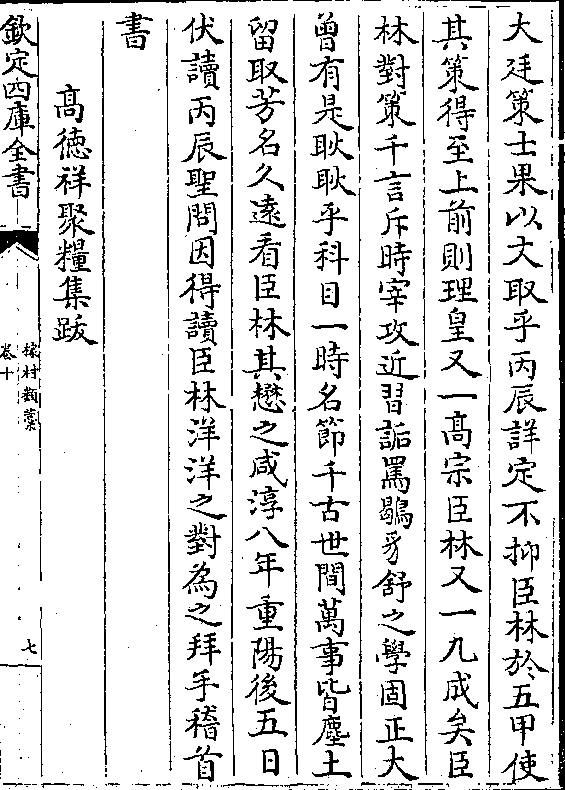 大廷策士果以大取乎丙辰詳定不抑臣林於五甲使
其策得至上前則理皇又一髙宗臣林又一九成矣臣
林對策千言斥時宰攻近習詬罵鶡豸舒之學固正大
曽有是耿耿乎科目一時名節千古世間萬事皆塵土
留取芳名久逺看臣林其懋之咸淳八年重陽後五日
伏讀丙辰聖問因得讀臣林洋洋之對為之拜手稽首
書
髙徳祥聚糧集䟦
欽定四庫全書
稼村類藁
卷十
七